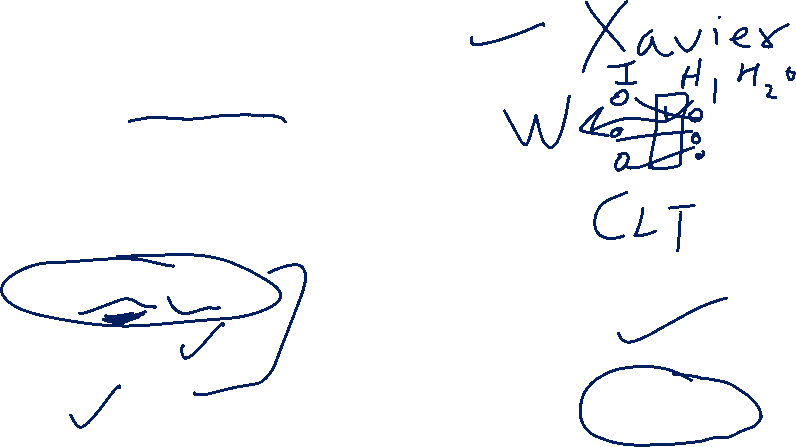 Xavier
I H1 H2 0
W
CLT